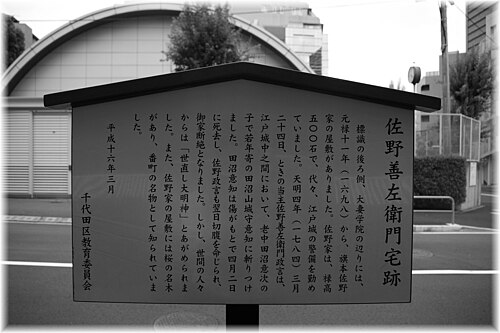 佐野善左衛門宅跡
標識の後ろ側、大妻学院の辺りには、
元禄十一年(一六九八)から、旗本佐野
家の屋敷がありました。佐野家は、禄高
五〇〇石で、代々、江戸城の警備を勤め
ていました。天明四年(一七八四)三月
二十四日、ときの当主佐野善左衛門政言は、
江戸城中之間において、老中田沼意次の
子で若年寄の田沼山城守意知に斬りつけ
ました。田沼意知は傷がもとで四月二日
に死去し、佐野政言も翌日切腹を命じられ、
御家断絶となりました。しかし、世間の人々
からは「世直し大明神」とあがめられま
した。また、佐野家の屋敷には桜の名木
があり、番町の名物として知られていま
した。
平成十六年三月
千代田区教育委員会